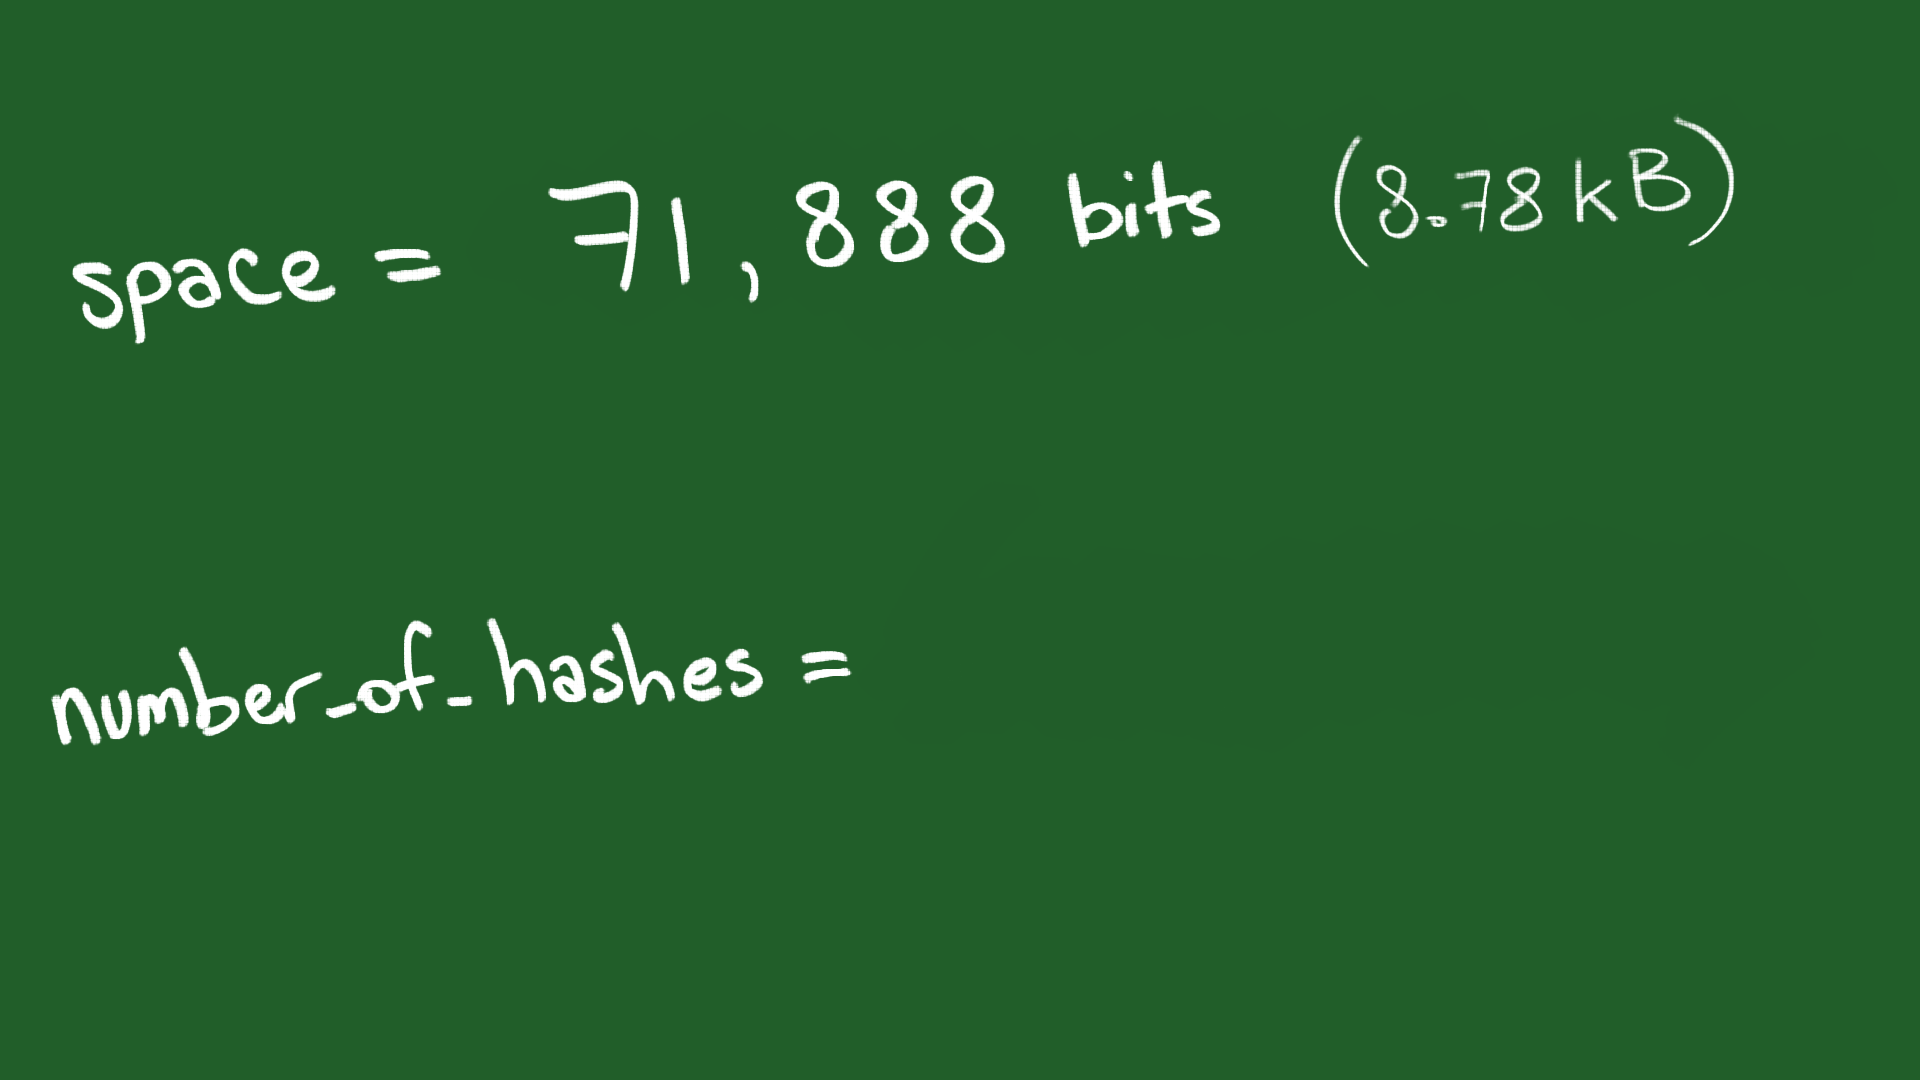 space = 71,888 bits (8.78 kB)
number_of_hashes =